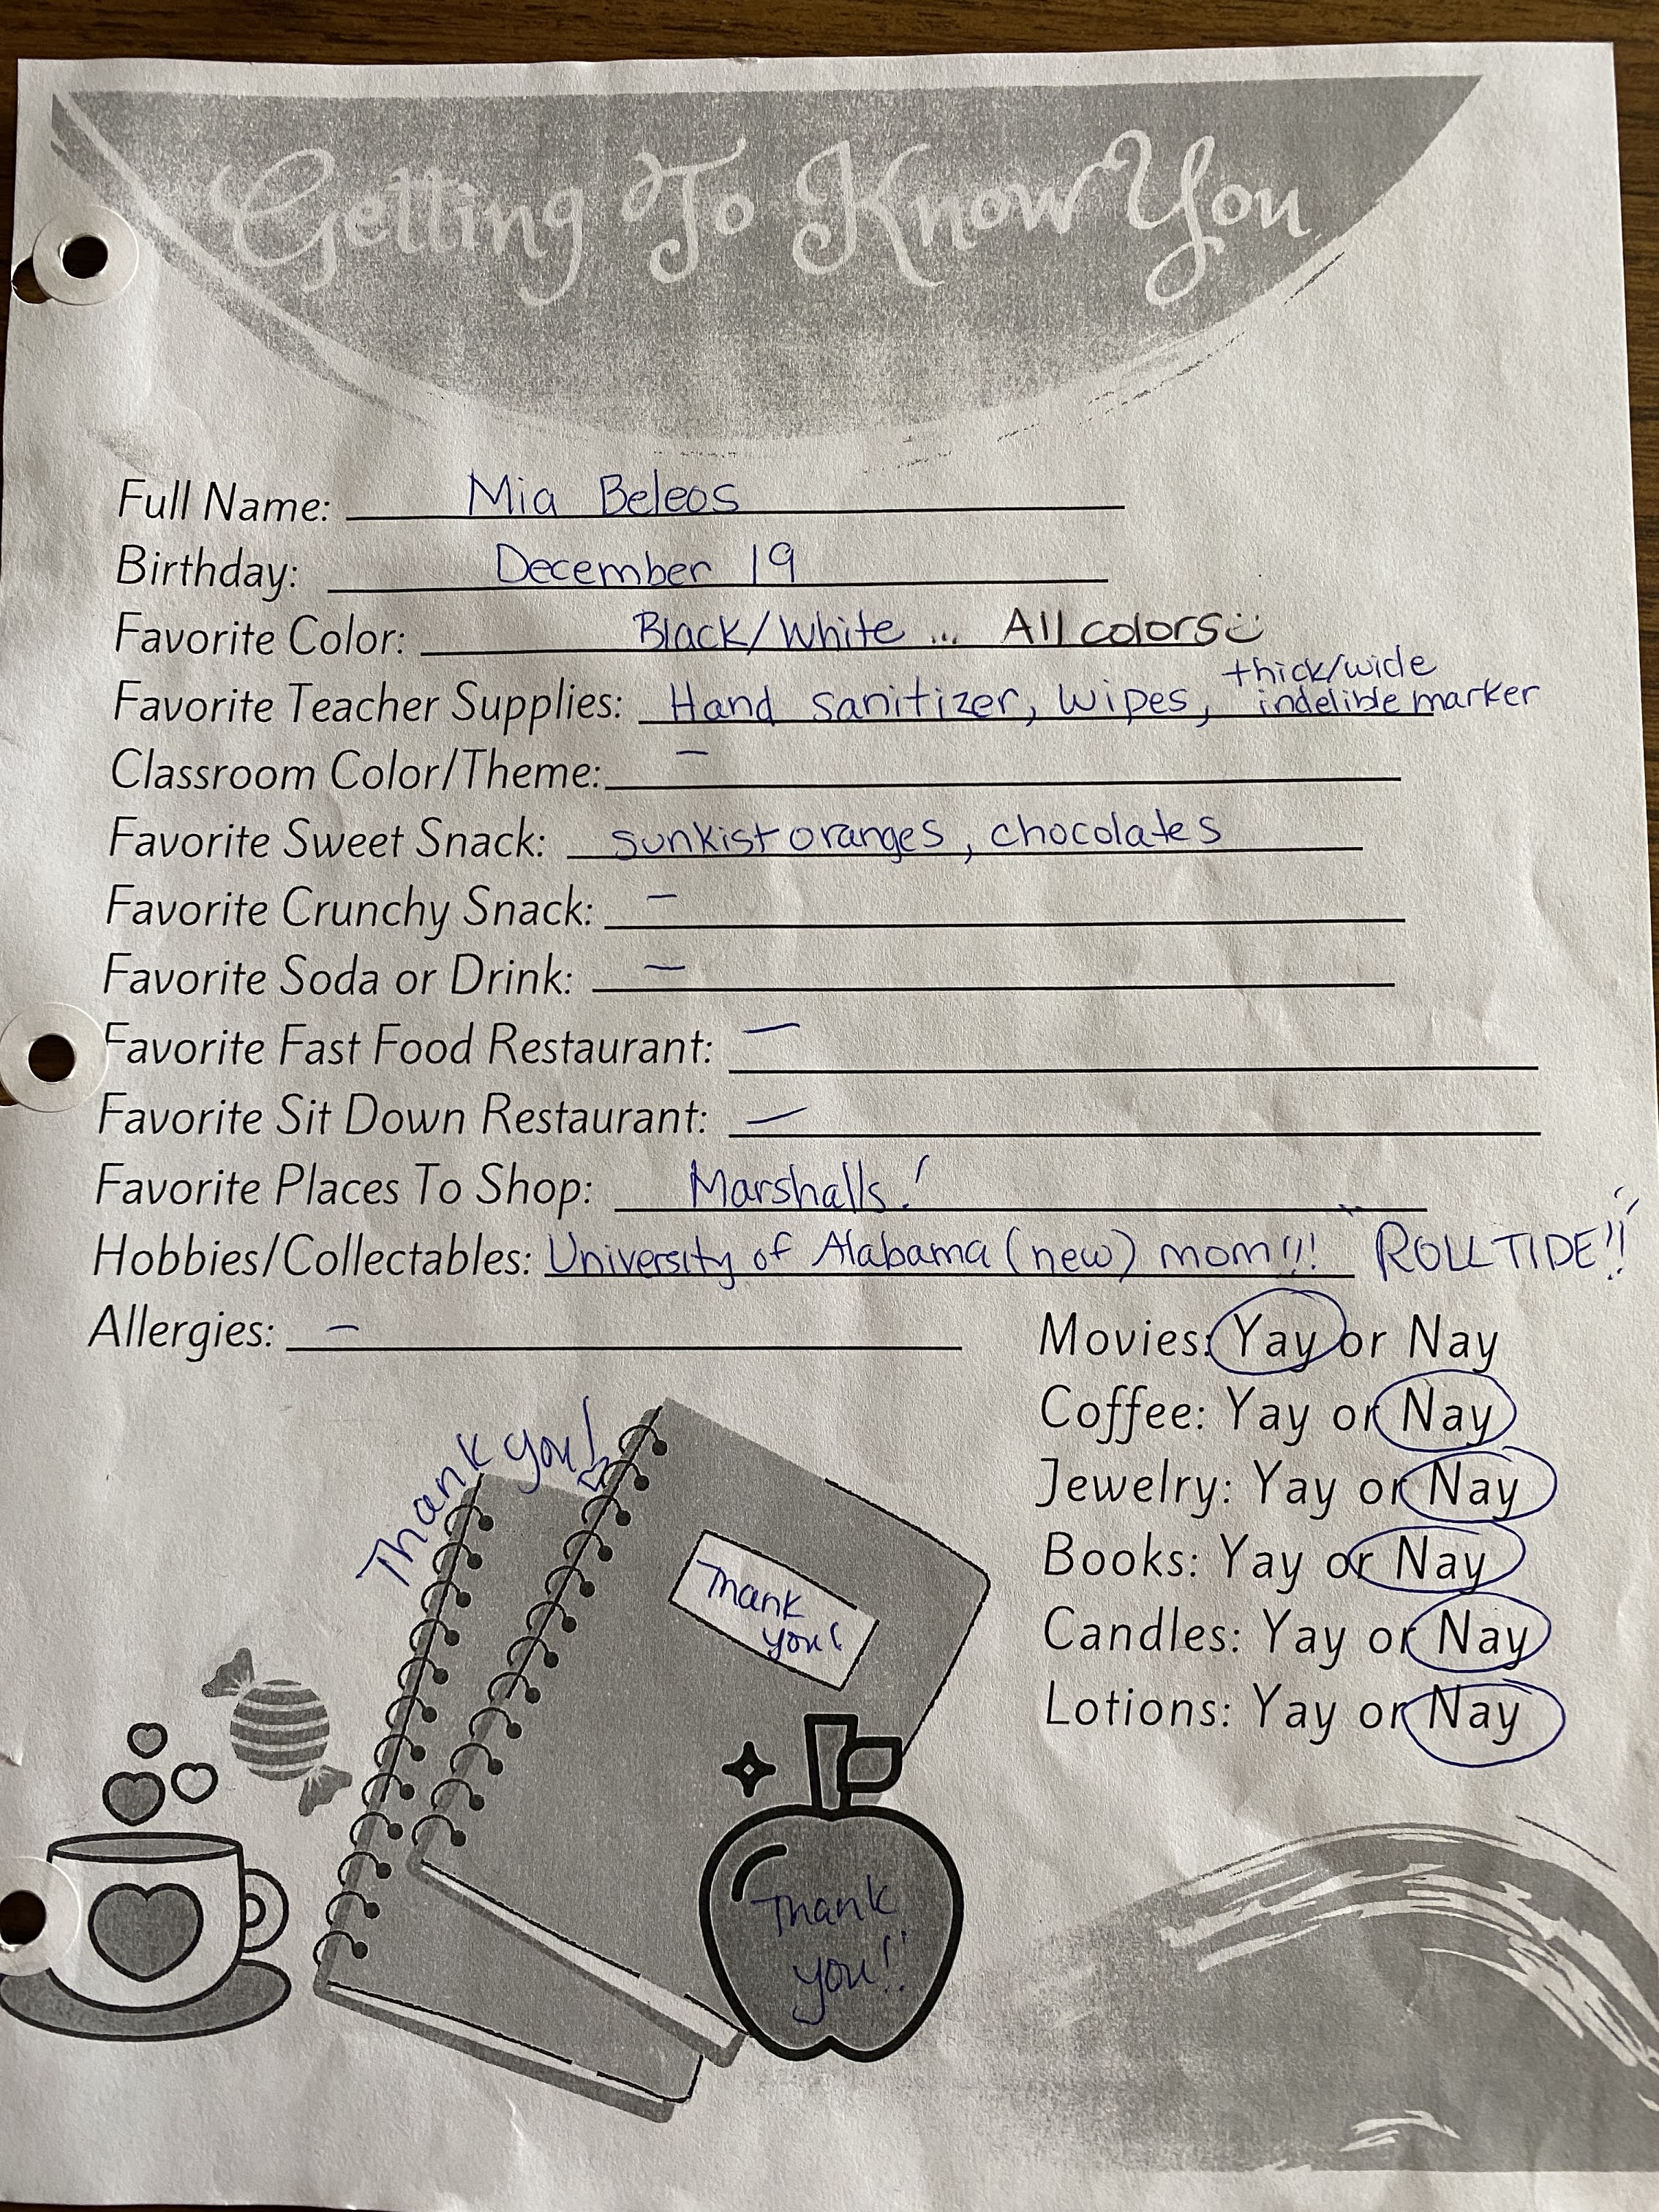 Getting To Know You
Full Name: Mia Beleos
Birthday: December 19
Favorite Color: Black/White ... All colors
Favorite Teacher Supplies: Hand sanitizer, wipes, thick/wide indelible marker
Classroom Color/Theme: –
Favorite Sweet Snack: sunkist oranges, chocolates
Favorite Crunchy Snack: –
Favorite Soda or Drink: –
Favorite Fast Food Restaurant: –
Favorite Sit Down Restaurant: –
Favorite Places To Shop: Marshalls!
Hobbies/Collectables: University of Alabama (new) mom!!! ROLL TIDE!!
Allergies: –
Movies: Yay or Nay
Coffee: Yay or Nay
Jewelry: Yay or Nay
Books: Yay or Nay
Candles: Yay or Nay
Lotions: Yay or Nay
Thank you!
Thank
you!
Thank
you!!